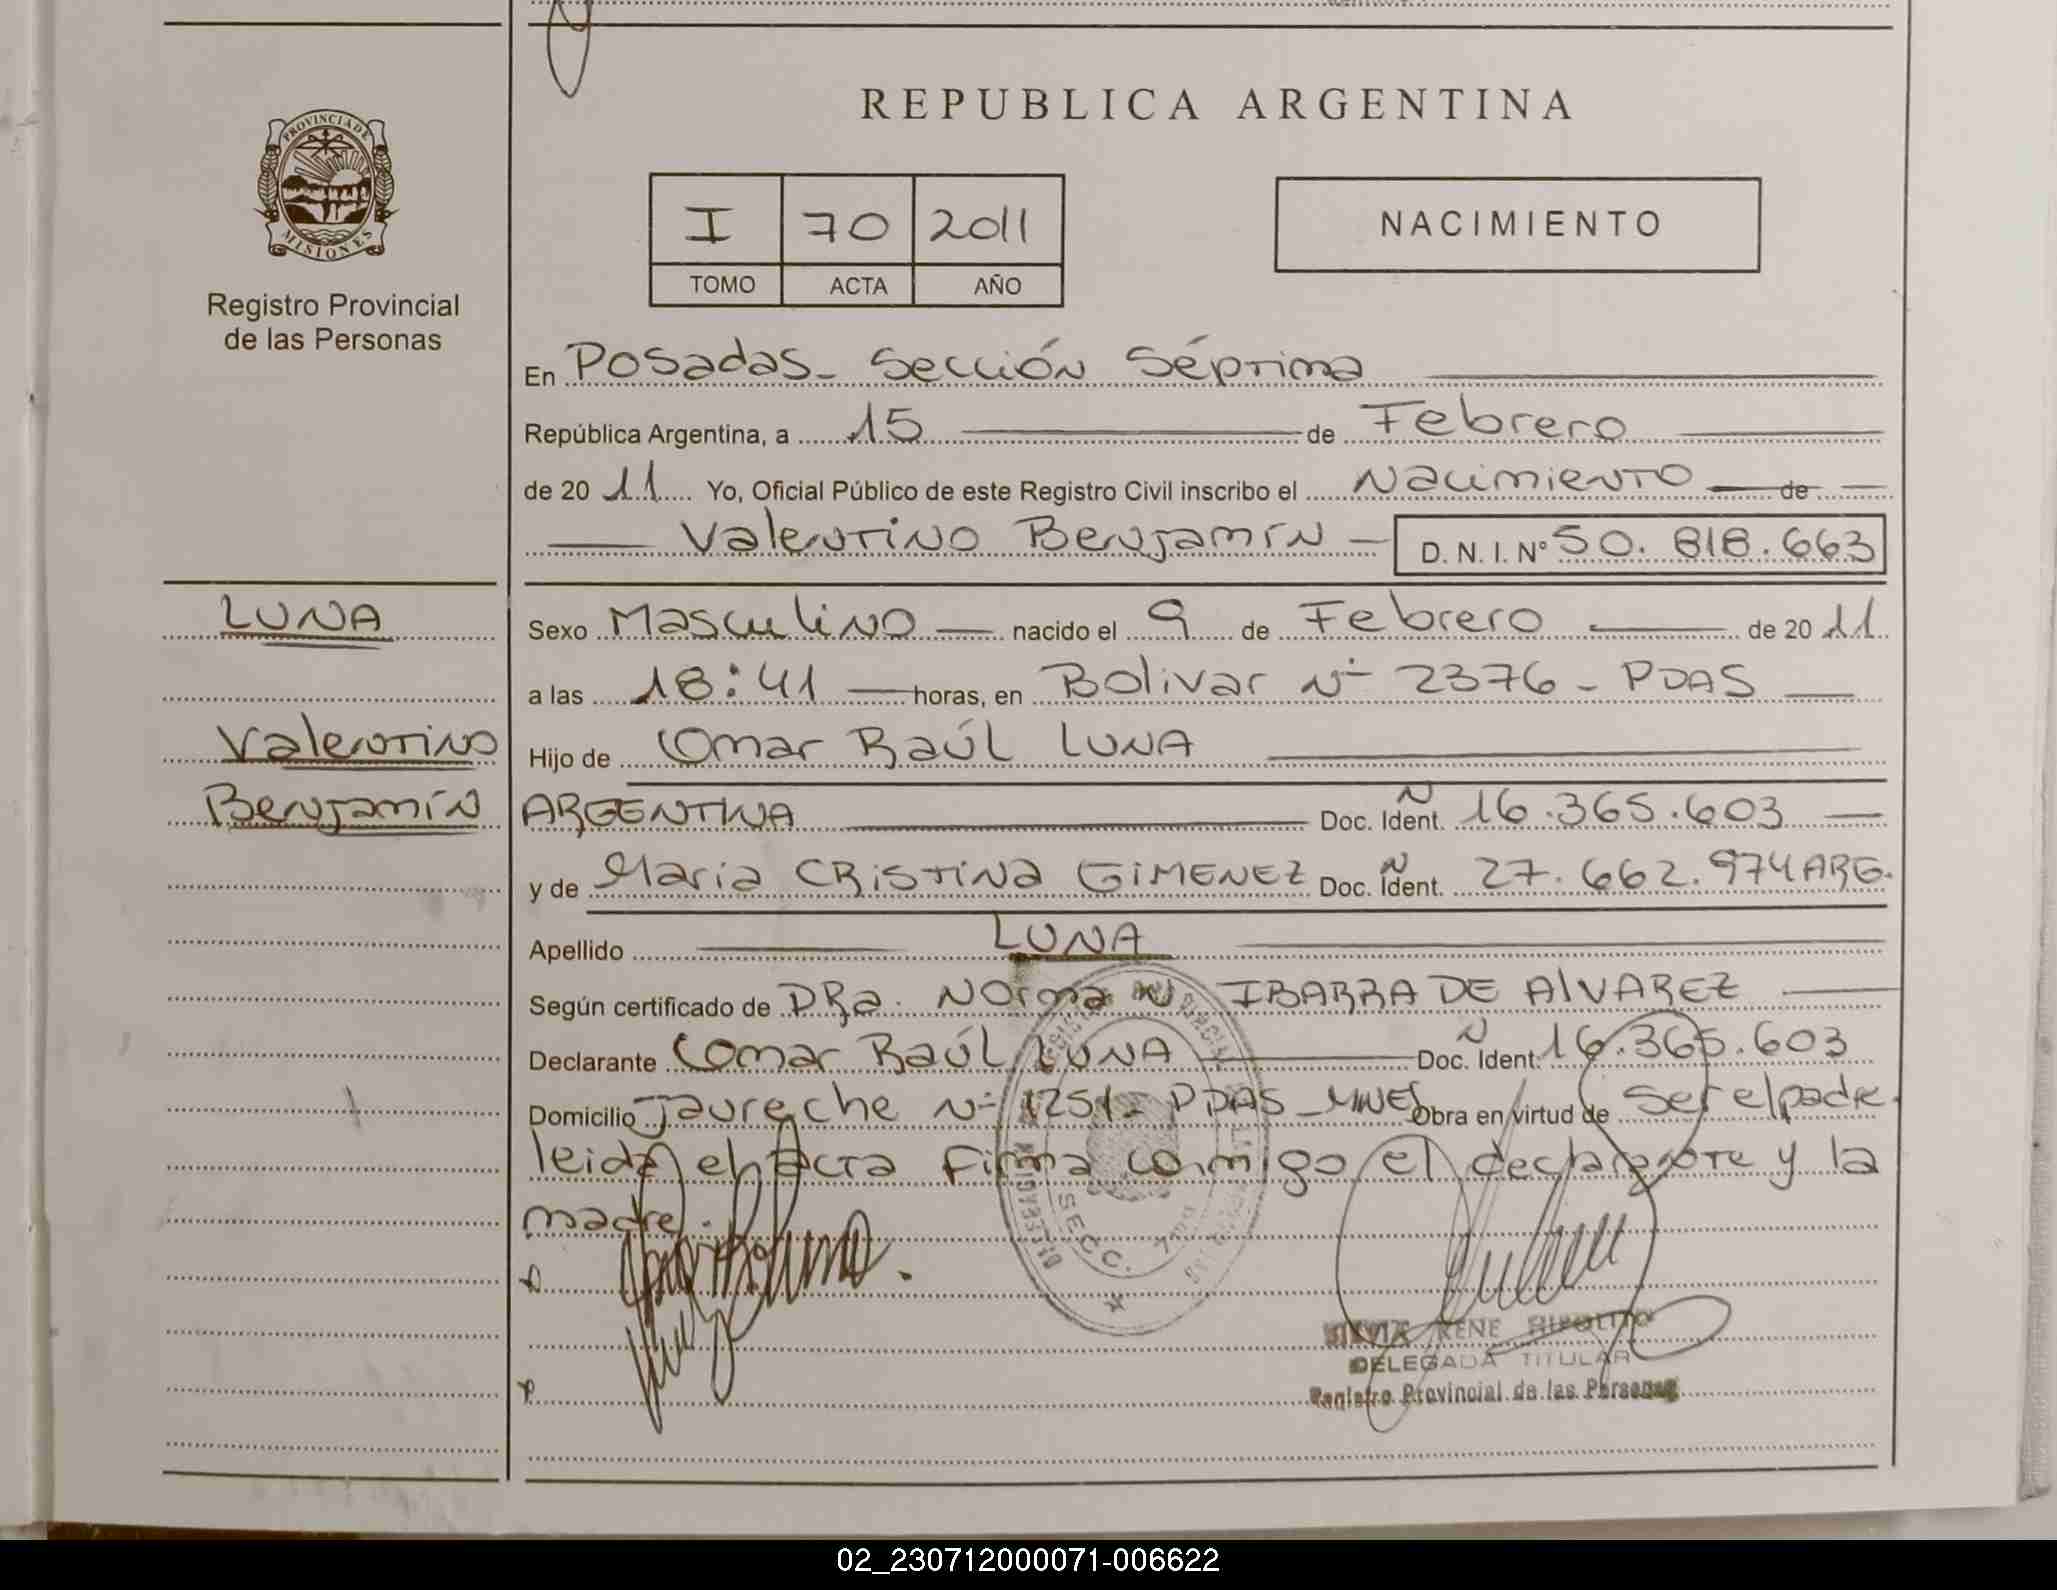 REPUBLICA ARGENTINA
PROVINCIA DE
MISIONES
Registro Provincial
de las Personas
I 70 2011
TOMO ACTA AÑO
NACIMIENTO
En Posadas - Sección Séptima
República Argentina, a 15 de Febrero
de 2011 Yo, Oficial Público de este Registro Civil inscribo el Nacimiento de
Valentino Benjamín D. N. I. Nº 50.818.663
LUNA
Valentino
Benjamín
Sexo Masculino nacido el 9 de Febrero de 2011
a las 18:41 horas, en Bolivar Nº 2376 - PDAS
Hijo de Omar Raúl LUNA
ARGENTINA Doc. Ident. Ñ 16.365.603
y de Maria CRISTINA GIMENEZ Doc. Ident. Ñ 27.662.974 ARG.
Apellido LUNA
Según certificado de DRa. Norma N IBARRA DE AlVAREZ
Declarante Omar Raúl LUNA Doc. Ident. Ñ 16.365.603
Domicilio Jaureche Nº 1251 - PDAS - MNES Obra en virtud de ser el padre.
leida el acta firma conmigo el declarante y la
madre.
SECC. 7
SILVIA IRENE RIPOLITO
DELEGADA TITULAR
Registro Provincial de las Personas
02_230712000071-006622